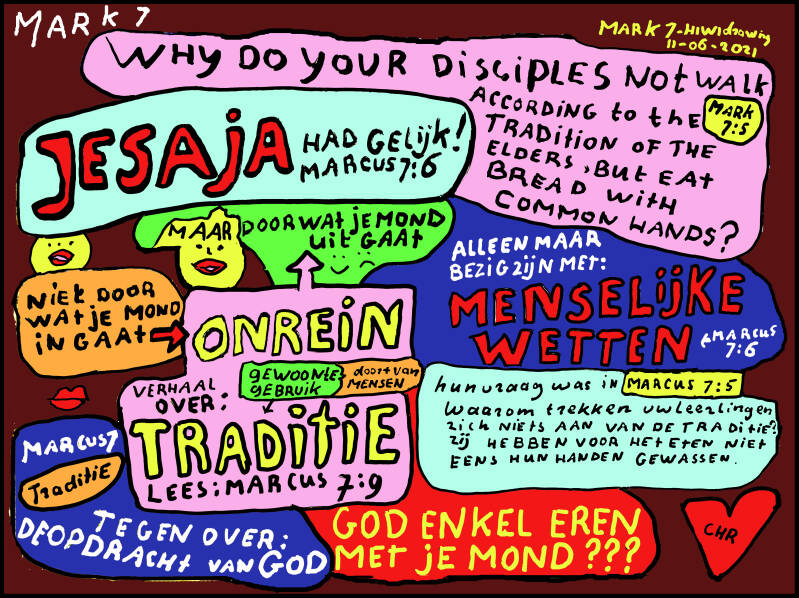 MARK 7
MARK 7-HIWIdrawing
11-06-2021
WHY DO YOUR DISCIPLES NOT WALK
ACCORDING to the
TRADITION OF THE
ELDERS, BUT EAT
BREAD WITH
COMMON HANDS?
MARK
7:5
JESAJA
HAD GELIJK!
MARCUS 7:6
MAAR
DOOR WAT JE MOND
UIT GAAT
ALLEEN MAAR
BEZIG ZIJN MET:
MENSELIJKE
WETTEN
MARCUS
7:6
NIET DOOR
WAT JE MOND
IN GAAT
ONREIN
GEWOONTE
GEBRUIK
door van
MENSEN
VERHAAL
OVER:
TRADITIE
LEES: MARCUS 7:9
hun vraag was in MARCUS 7:5
waarom trekken uw leerlingen
zich NIETS AAN VAN DE TRADITIE?
zij HEBBEN VOOR HET ETEN NIET
EENS HUN HANDEN GEWASSEN.
MARCUS 7
TRADITIE
TEGEN OVER:
DE OPDRACHT VAN GOD
GOD ENKEL EREN
MET JE MOND ???
CHR